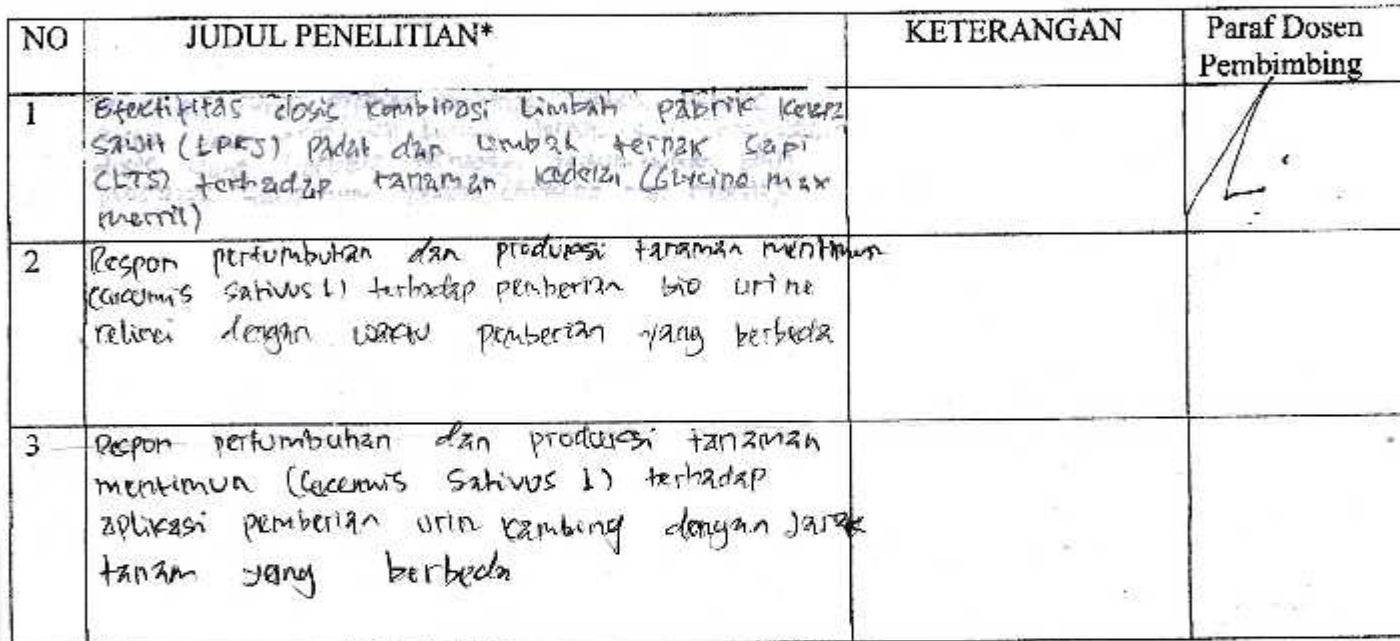 NO JUDUL PENELITIAN* KETERANGAN Paraf Dosen Pembimbing
1 Efektifitas dosis kombinasi Limbah pabrik kelapa
sawit (LPKS) Padat dan Limbah ternak sapi
(LTS) terhadap tanaman kedelai (Glycine max
merril)
2 Respon pertumbuhan dan produksi tanaman mentimun
(Cucumis sativus L) terhadap pemberian bio urine
kelinci dengan waktu pemberian yang berbeda
3 Respon pertumbuhan dan produksi tanaman
mentimun (Cucumis Sativus L) terhadap
aplikasi pemberian urin kambing dengan Jarak
tanam yang berbeda